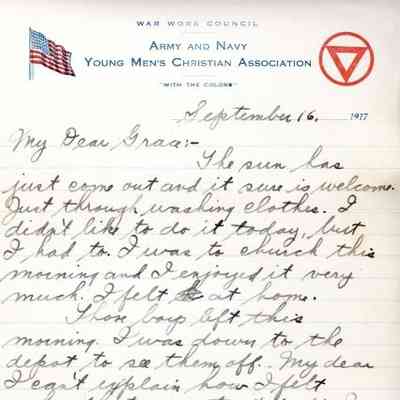 WAR WORK COUNCIL
ARMY AND NAVY
YOUNG MEN'S CHRISTIAN ASSOCIATION
"WITH THE COLORS"
September 16, 1917
My Dear Grace:-
The sun has
just come out and it sure is welcome.
Just through washing clothes. I
didn't like to do it today, but
I had to. I was to church this
morning and I enjoyed it very
much. I felt at home.
Those boys left this
morning. I was down to the
depot to see them off. My dear
I can't explain how I felt